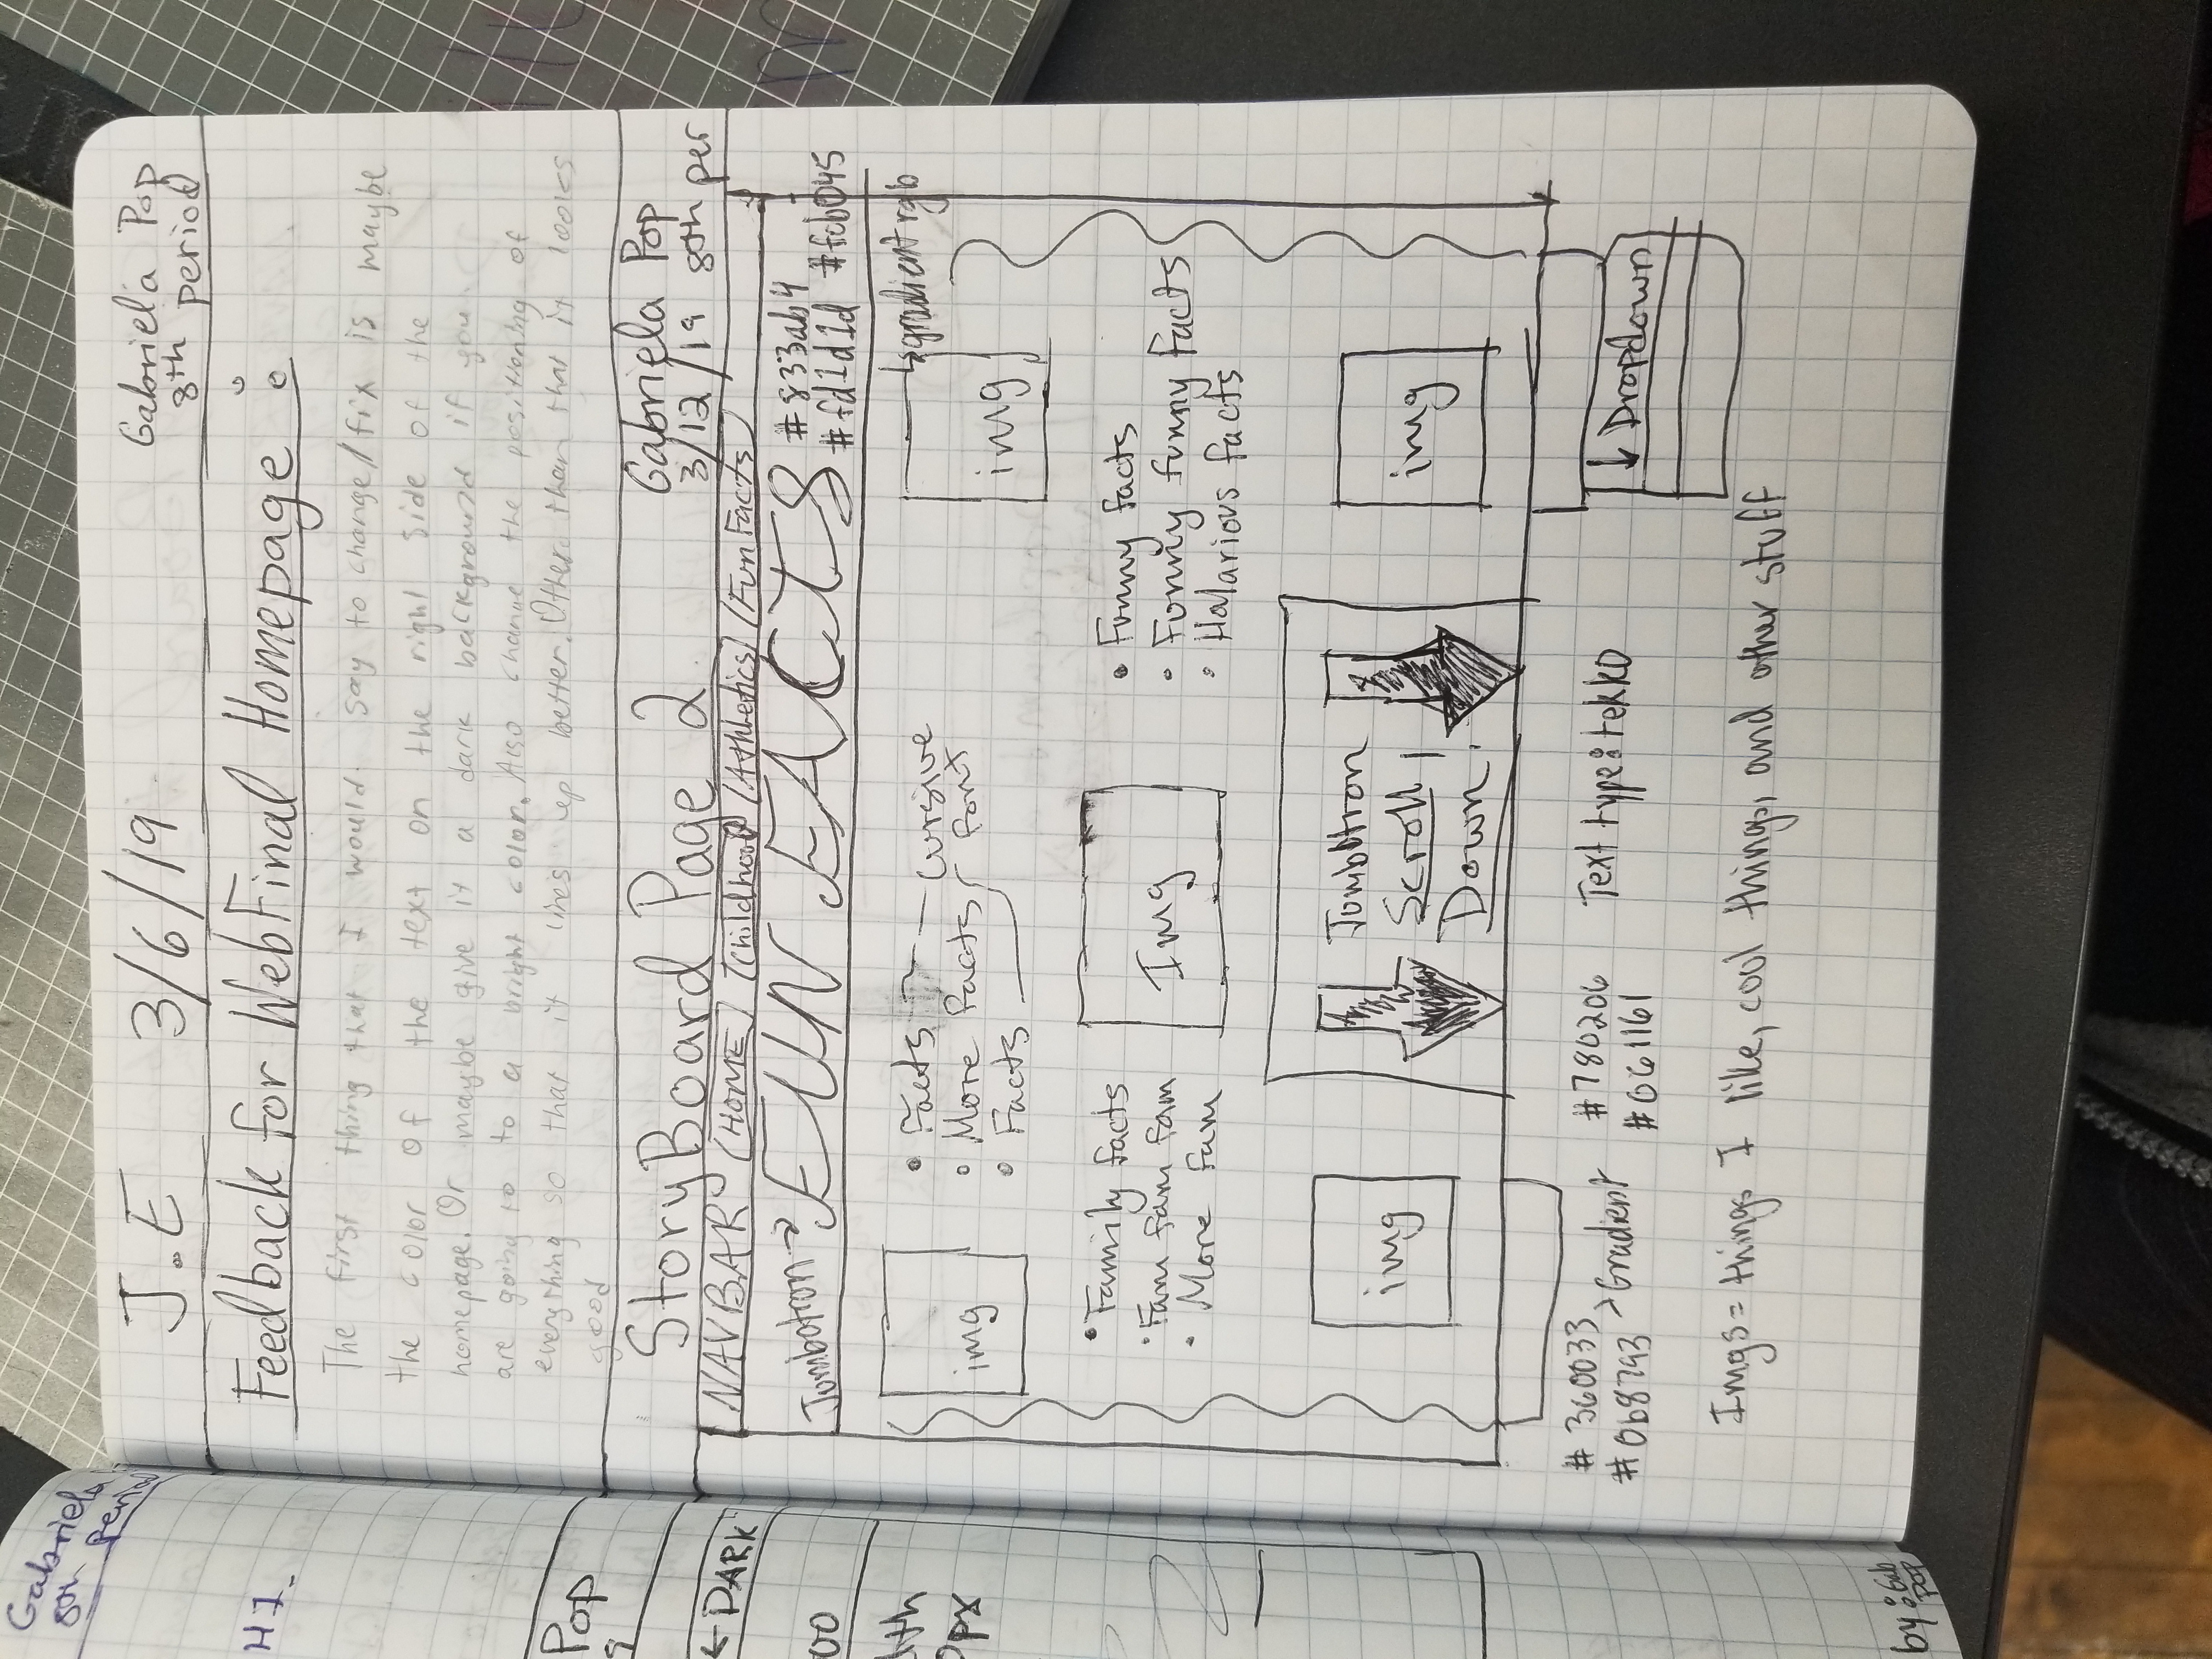 Gabriela
8th period
H7.
Pop
9
← DARK
00
px
by: Gab
Pop
J.E 3/6/19 Gabriela Pop
8th period
Feedback for WebFinal Homepage :
The first thing that I would say to change/fix is maybe
the color of the text on the right side of the
homepage. Or maybe give it a dark background if you
are going to to a bright color. Also change the positioning of
everything so that it lines up better. Other than that it looks
good
StoryBoard Page 2 Gabriela Pop
3/12/19 8th per
NAVBAR HOME Childhood Athletics Fun Facts
Jumbotron → FUN FACTS #833ab4
#fd1d1d #fcb045
gradient rgb
img
• Facts
• More Facts
• Facts
cursive
font
img
• Family facts
• Fam fam fam
• More fam
Img
• Funny facts
• Funny funny facts
• Halarious facts
img
Jumbotron
Scroll
Down!
img
#360033
#0b8793 > Gradient
#780206
#061161
Text type: tekko
↓ Dropdown
Imgs = things I like, cool things, and other stuff